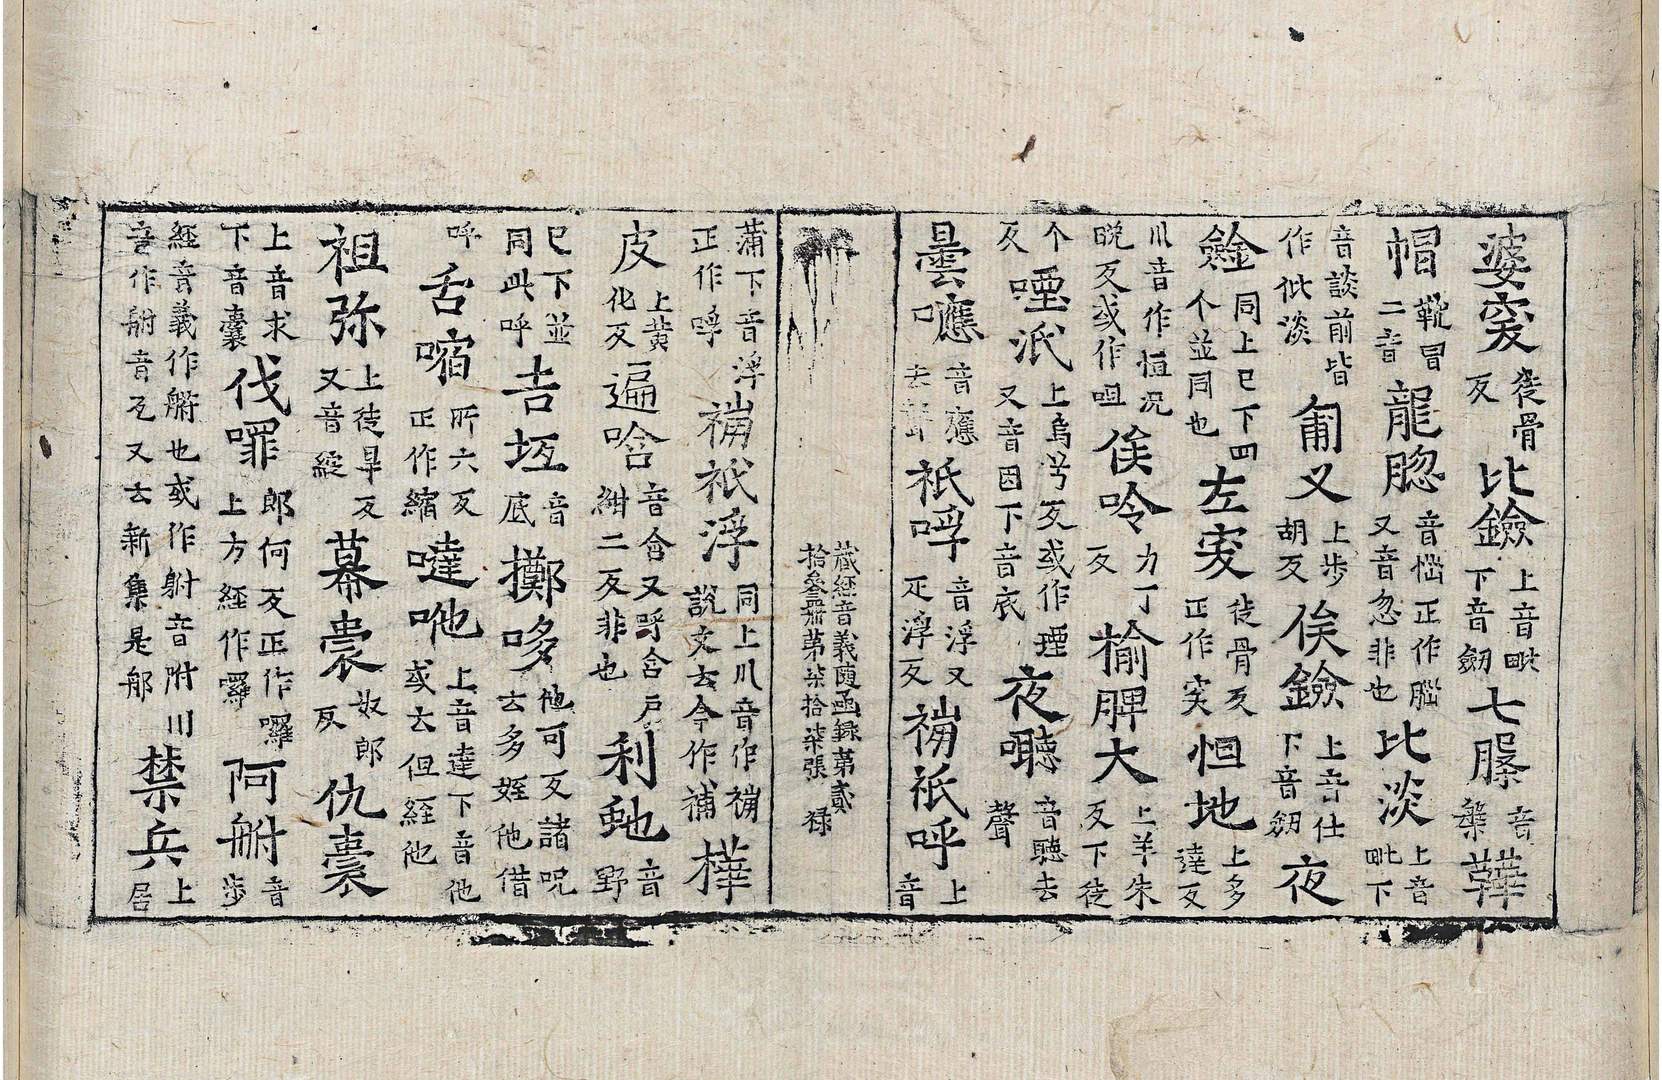 婆突徒骨反比鐱上音毗下音劒七𦜝音槃鞾
帽靴冒二音龍脗音惱正作腦又音忽非也比淡上音毗下
音談前皆作仳淡匍叉上步胡反俟鐱上音仕下音劒夜
鐱同上巳下四个並同也左突徒骨反正作突怛地上多達反
川音作恒况晚反或作咀俟呤力丁反榆脾大上羊朱反下徒
个反堙汦上烏兮反或作堙又音因下音衣夜聽音聽去聲
曇噟音應去聲祇呼音浮又疋浮反補祇呼上音
藏經音義隨函錄第貳拾叄册第柒拾柒張 祿
蒲下音浮正作呼補祇浮同上川音作補說文云今作補樺
皮上黃化反遍唅音會又呼含戶紺二反非也利虵音野
巳下並同此呼吉坘音底擲哆他可反諸呪云多姪他借
呼舌㗩所六反正作縮噠咃上音達下音他或云但經他
祖弥上徒旱反又音綻幕囊奴郎反仇囊
上音求下音囊伐㘑郎何反正作囉上方經作囉阿䑧音步
經音義作䑧也或作射音附川音作䑧音瓦又云新集是郍禁兵上居